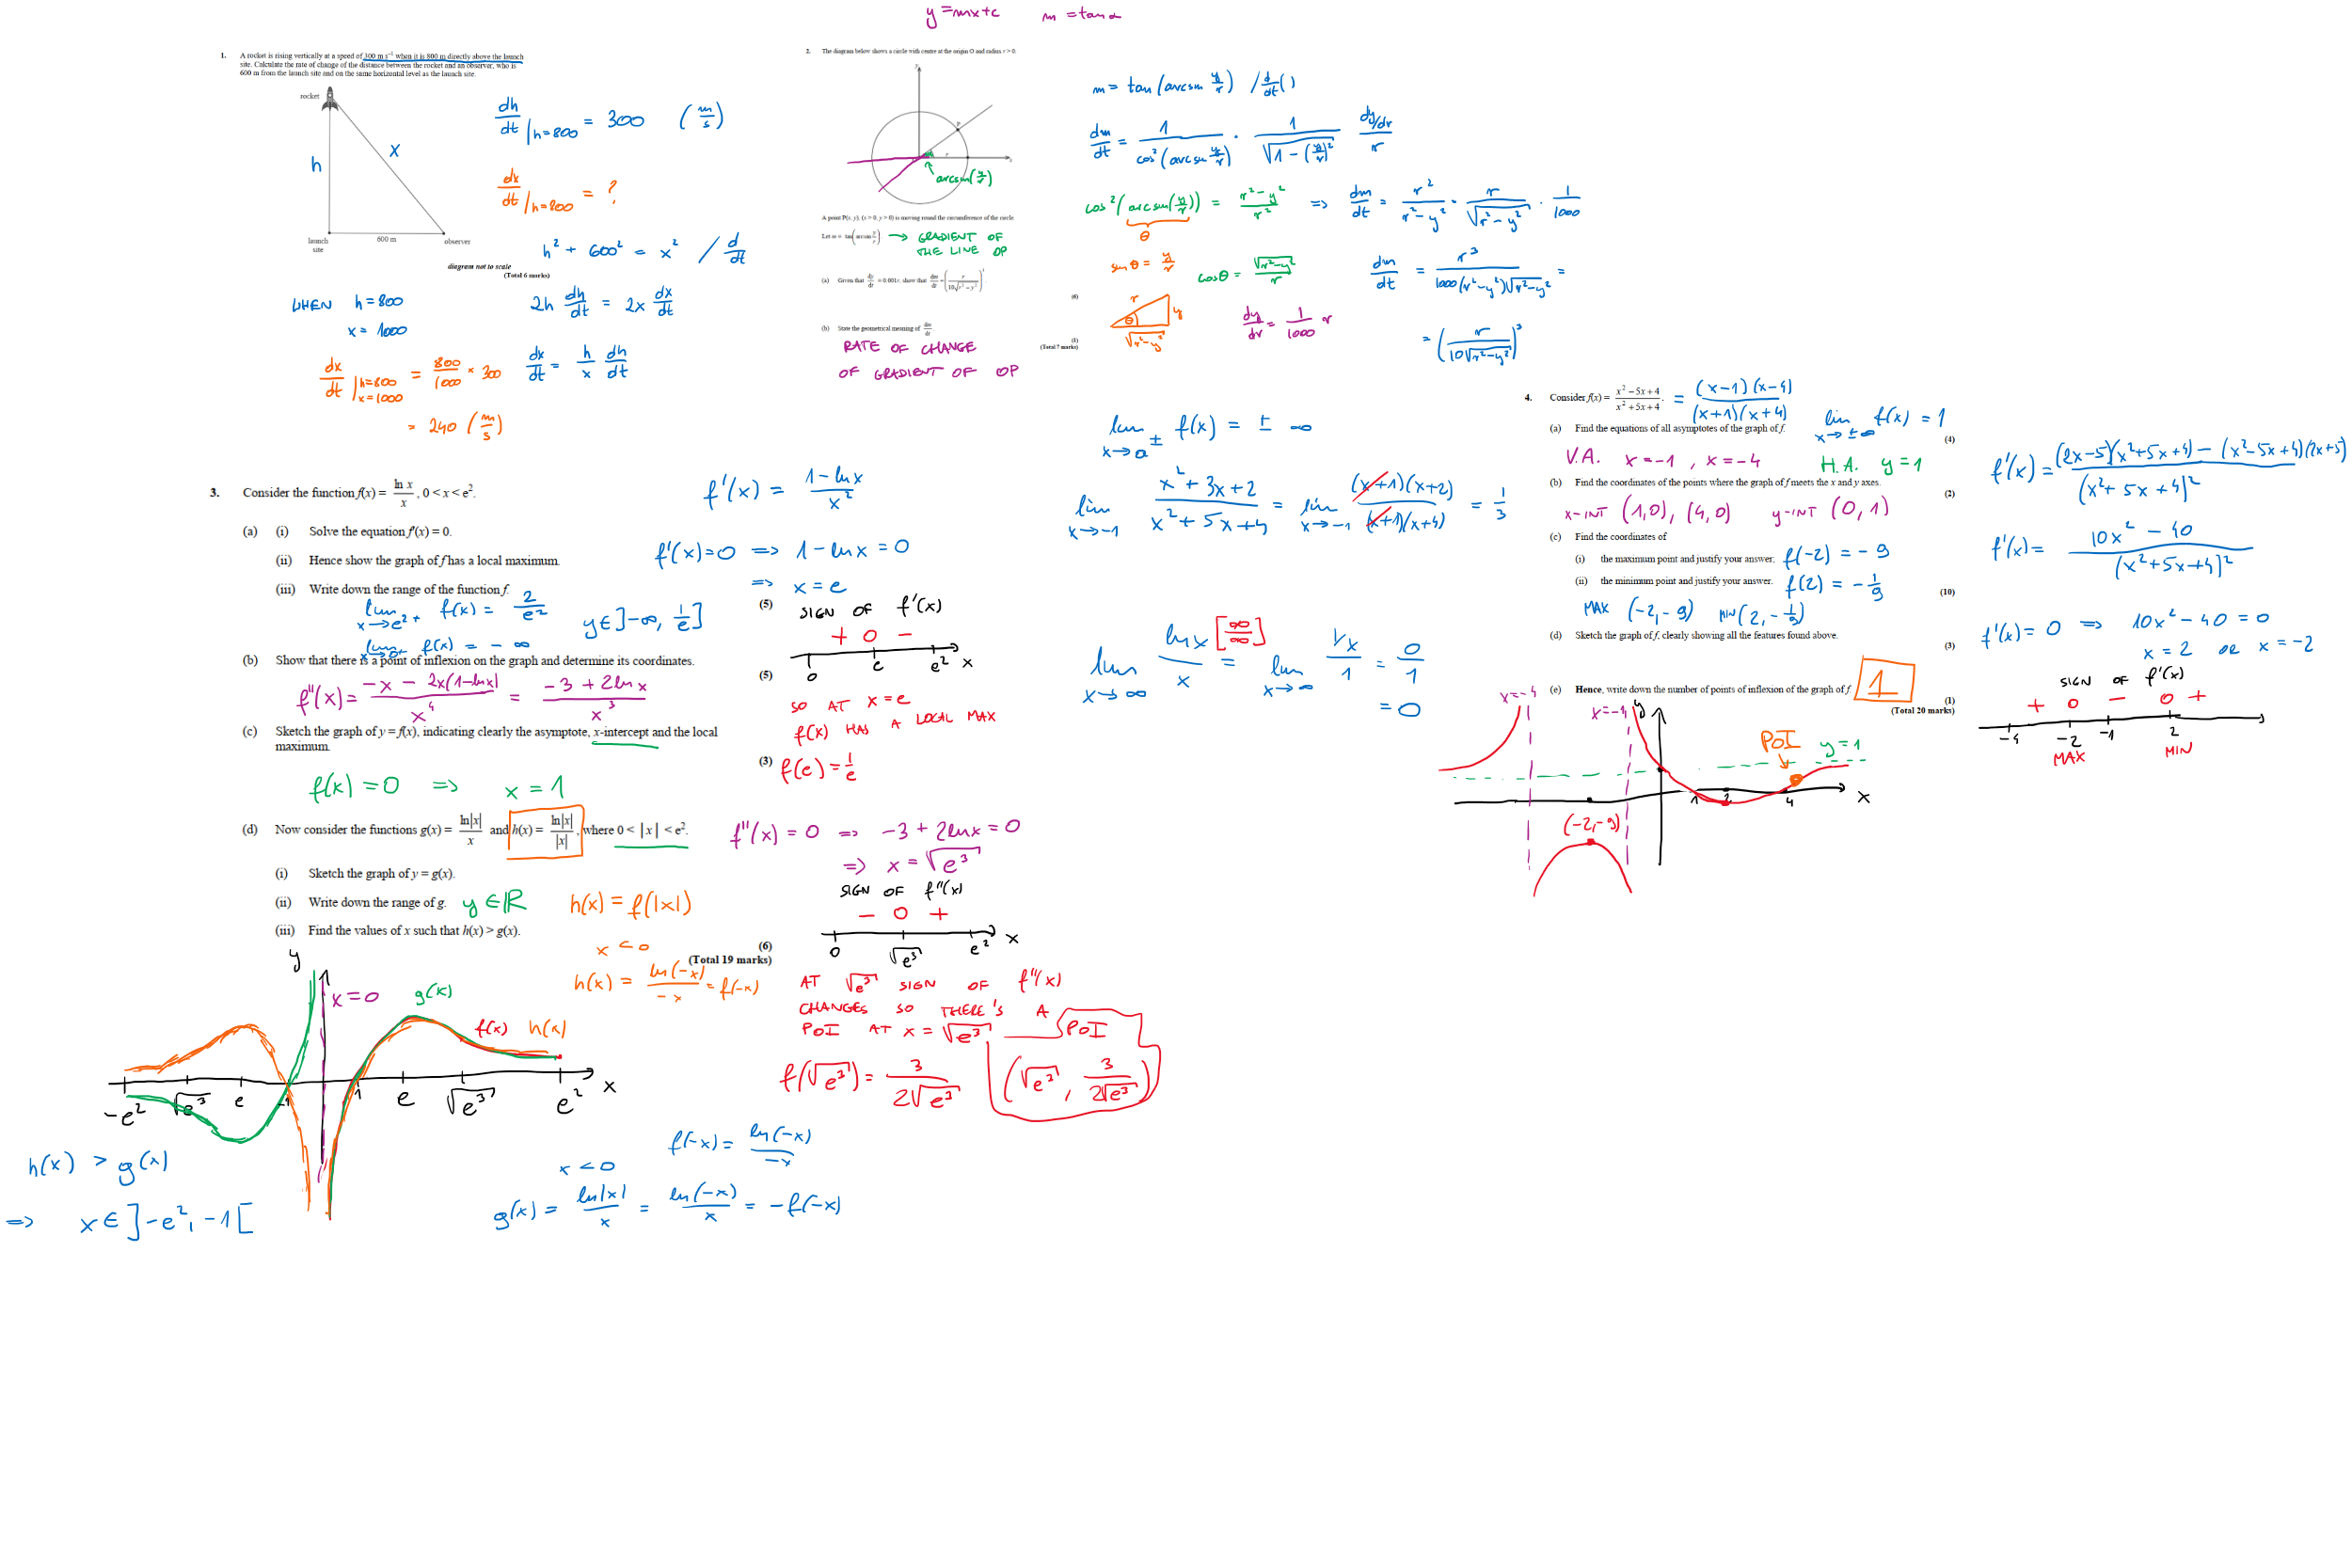 y = mx+c   m = tan α
1. A rocket is rising vertically at a speed of 300 m s⁻¹ when it is 800 m directly above the launch
site. Calculate the rate of change of the distance between the rocket and an observer, who is
600 m from the launch site and on the same horizontal level as the launch site.
rocket
h
x
launch
site
600 m
observer
diagram not to scale
(Total 6 marks)
dh/dt |h=800 = 300 (m/s)
dx/dt |h=800 = ?
h² + 600² = x² / d/dt
WHEN h = 800
x = 1000
2h dh/dt = 2x dx/dt
dx/dt = h/x dh/dt
dx/dt |h=800 x=1000 = 800/1000 × 300
= 240 (m/s)
2. The diagram below shows a circle with centre at the origin O and radius r > 0.
y
P
r
x
arcsin(y/r)
A point P(x, y), (x > 0, y > 0) is moving round the circumference of the circle.
Let m = tan(arcsin y/r) → GRADIENT OF
THE LINE OP
(a) Given that dy/dt = 0.001r, show that dm/dt = (r/(10√(r²−y²)))³
(6)
(b) State the geometrical meaning of dm/dt
(1)
(Total 7 marks)
RATE OF CHANGE
OF GRADIENT OF OP
m = tan(arcsin y/r) / d/dt ( )
dm/dt = 1/cos²(arcsin y/r) · 1/√(1−(y/r)²) dy/dr/r
cos²(arcsin(y/r)) = (r²−y²)/r² => dm/dt = r²/(r²−y²) · r/√(r²−y²) · 1/1000
θ
sin θ = y/r
cos θ = √(r²−y²)/r
dm/dt = r³/(1000(r²−y²)√(r²−y²)) =
r
θ
y
√(r²−y²)
dy/dr = 1/1000 r
= (r/(10√(r²−y²)))³
3. Consider the function f(x) = ln x/x, 0 < x < e².
(a) (i) Solve the equation f′(x) = 0.
(ii) Hence show the graph of f has a local maximum.
(iii) Write down the range of the function f.
(5)
lim x→e²+ f(x) = 2/e²
y ∈ ]−∞, 1/e]
lim x→0+ f(x) = −∞
(b) Show that there is a point of inflexion on the graph and determine its coordinates.
(5)
f″(x) = (−x − 2x(1−ln x))/x⁴ = (−3 + 2ln x)/x³
(c) Sketch the graph of y = f(x), indicating clearly the asymptote, x-intercept and the local
maximum.
(3)
f(x) = 0 => x = 1
(d) Now consider the functions g(x) = ln|x|/x and h(x) = ln|x|/|x|, where 0 < |x| < e².
(i) Sketch the graph of y = g(x).
(ii) Write down the range of g. y ∈ ℝ
h(x) = f(|x|)
(iii) Find the values of x such that h(x) > g(x).
(6)
(Total 19 marks)
x < 0
h(x) = ln(−x)/−x = f(−x)
f′(x) = (1−ln x)/x²
f′(x) = 0 => 1 − ln x = 0
=> x = e
SIGN OF f′(x)
+ 0 −
0 e e² x
SO AT x = e
f(x) HAS A LOCAL MAX
f(e) = 1/e
f″(x) = 0 => −3 + 2ln x = 0
=> x = √e³
SIGN OF f″(x)
− 0 +
0 √e³ e² x
AT √e³ SIGN OF f″(x)
CHANGES SO THERE'S A
POI AT x = √e³
POI
f(√e³) = 3/(2√e³)
(√e³, 3/(2√e³))
y
x = 0
g(x)
f(x) h(x)
−e² √e³ e −1 1 e √e³ e² x
h(x) > g(x)
=> x ∈ ]−e², −1[
f(−x) = ln(−x)/−x
x < 0
g(x) = ln|x|/x = ln(−x)/x = −f(−x)
lim x→a± f(x) = ±∞
lim x→−1 (x²+3x+2)/(x²+5x+4) = lim x→−1 (x+1)(x+2)/(x+1)(x+4) = 1/3
lim x→∞ ln x/x [∞/∞] = lim x→∞ (1/x)/1 = 0/1
= 0
4. Consider f(x) = (x²−5x+4)/(x²+5x+4). = (x−1)(x−4)/(x+1)(x+4)
(a) Find the equations of all asymptotes of the graph of f.
lim x→±∞ f(x) = 1
(4)
V.A. x = −1, x = −4   H.A. y = 1
(b) Find the coordinates of the points where the graph of f meets the x and y axes.
(2)
x-INT (1,0), (4,0)   y-INT (0,1)
(c) Find the coordinates of
(i) the maximum point and justify your answer; f(−2) = −9
(ii) the minimum point and justify your answer. f(2) = −1/9
(10)
MAX (−2,−9)   MIN (2, −1/9)
(d) Sketch the graph of f, clearly showing all the features found above.
(3)
(e) Hence, write down the number of points of inflexion of the graph of f. 1
(1)
(Total 20 marks)
x = −4
x = −1
y
POI
y = 1
1 2 4 x
(−2,−9)
f′(x) = ((2x−5)(x²+5x+4) − (x²−5x+4)(2x+5))/(x²+5x+4)²
f′(x) = (10x²−40)/(x²+5x+4)²
f′(x) = 0 => 10x² − 40 = 0
x = 2 OR x = −2
SIGN OF f′(x)
+ 0 − 0 +
−4 −2 −1 2
MAX MIN